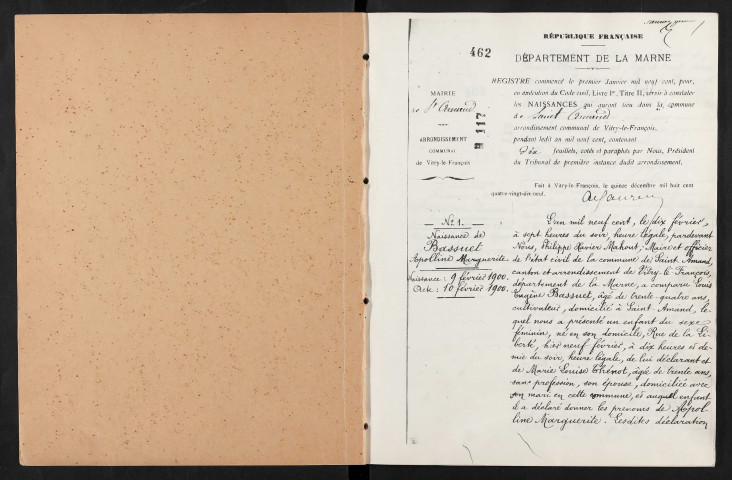 RÉPUBLIQUE FRANÇAISE
462
DÉPARTEMENT DE LA MARNE
REGISTRE commencé le premier Janvier mil neuf cent, pour,
en exécution du Code civil, Livre Ier, Titre II, servir à constater
les NAISSANCES qui auront lieu dans la commune
de Saint Amand
arrondissement communal de Vitry-le-François,
pendant ledit an mil neuf cent, contenant
Dix feuillets, cotés et paraphés par Nous, Président
du Tribunal de première instance dudit arrondissement.
MAIRIE
de St Amand
ARRONDISSEMENT
COMMUNAL
de Vitry-le-François
117
Fait à Vitry-le-François, le quinze décembre mil huit cent
quatre-vingt-dix-neuf.
No 1.
Naissance de
Bassuet
Apolline Marguerite
Naissance: 9 février 1900.
Acte: 10 février 1900.
L'an mil neuf cent, le dix février,
à sept heures du soir, heure légale, pardevant
Nous, Philippe Xavier Mahout, Maire et officier
de l'état civil de la commune de Saint-Amand,
canton et arrondissement de Vitry-le-François,
département de la Marne, a comparu Louis
Eugène Bassuet, âgé de trente-quatre ans,
cultivateur, domicilié à Saint-Amand, le-
quel nous a présenté un enfant du sexe
féminin, né en son domicile, Rue de la Li-
berté, hier neuf février, à dix heures et de-
mie du soir, heure légale, de lui déclarant et
de Marie Louise Thénot, âgée de trente ans,
sans profession, son épouse, domiciliée avec
son mari en cette commune, et auquel enfant
il a déclaré donner les prénoms de Apol-
line Marguerite. Lesdites déclaration